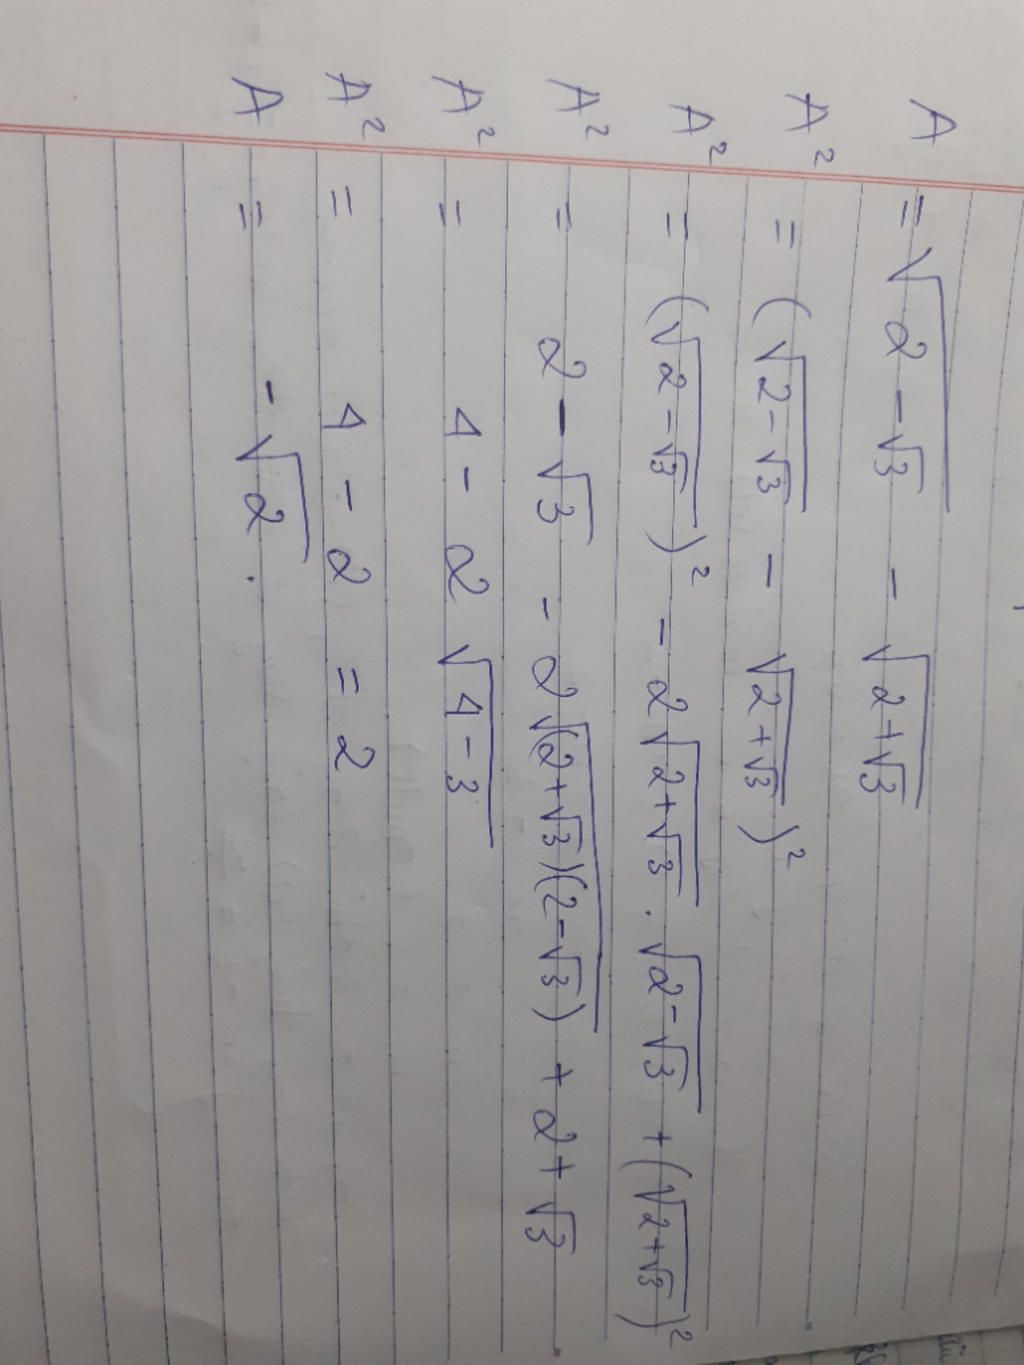 A = √(2 - √3) - √(2+√3)
A² = (√(2-√3) - √(2+√3))²
A² = (√(2-√3))² - 2√(2+√3) . √(2-√3) + (√(2+√3))²
A² = 2 - √3 - 2√((2+√3)(2-√3)) + 2 + √3
A² = 4 - 2 √(4-3)
A² = 4 - 2 = 2
A = -√2.